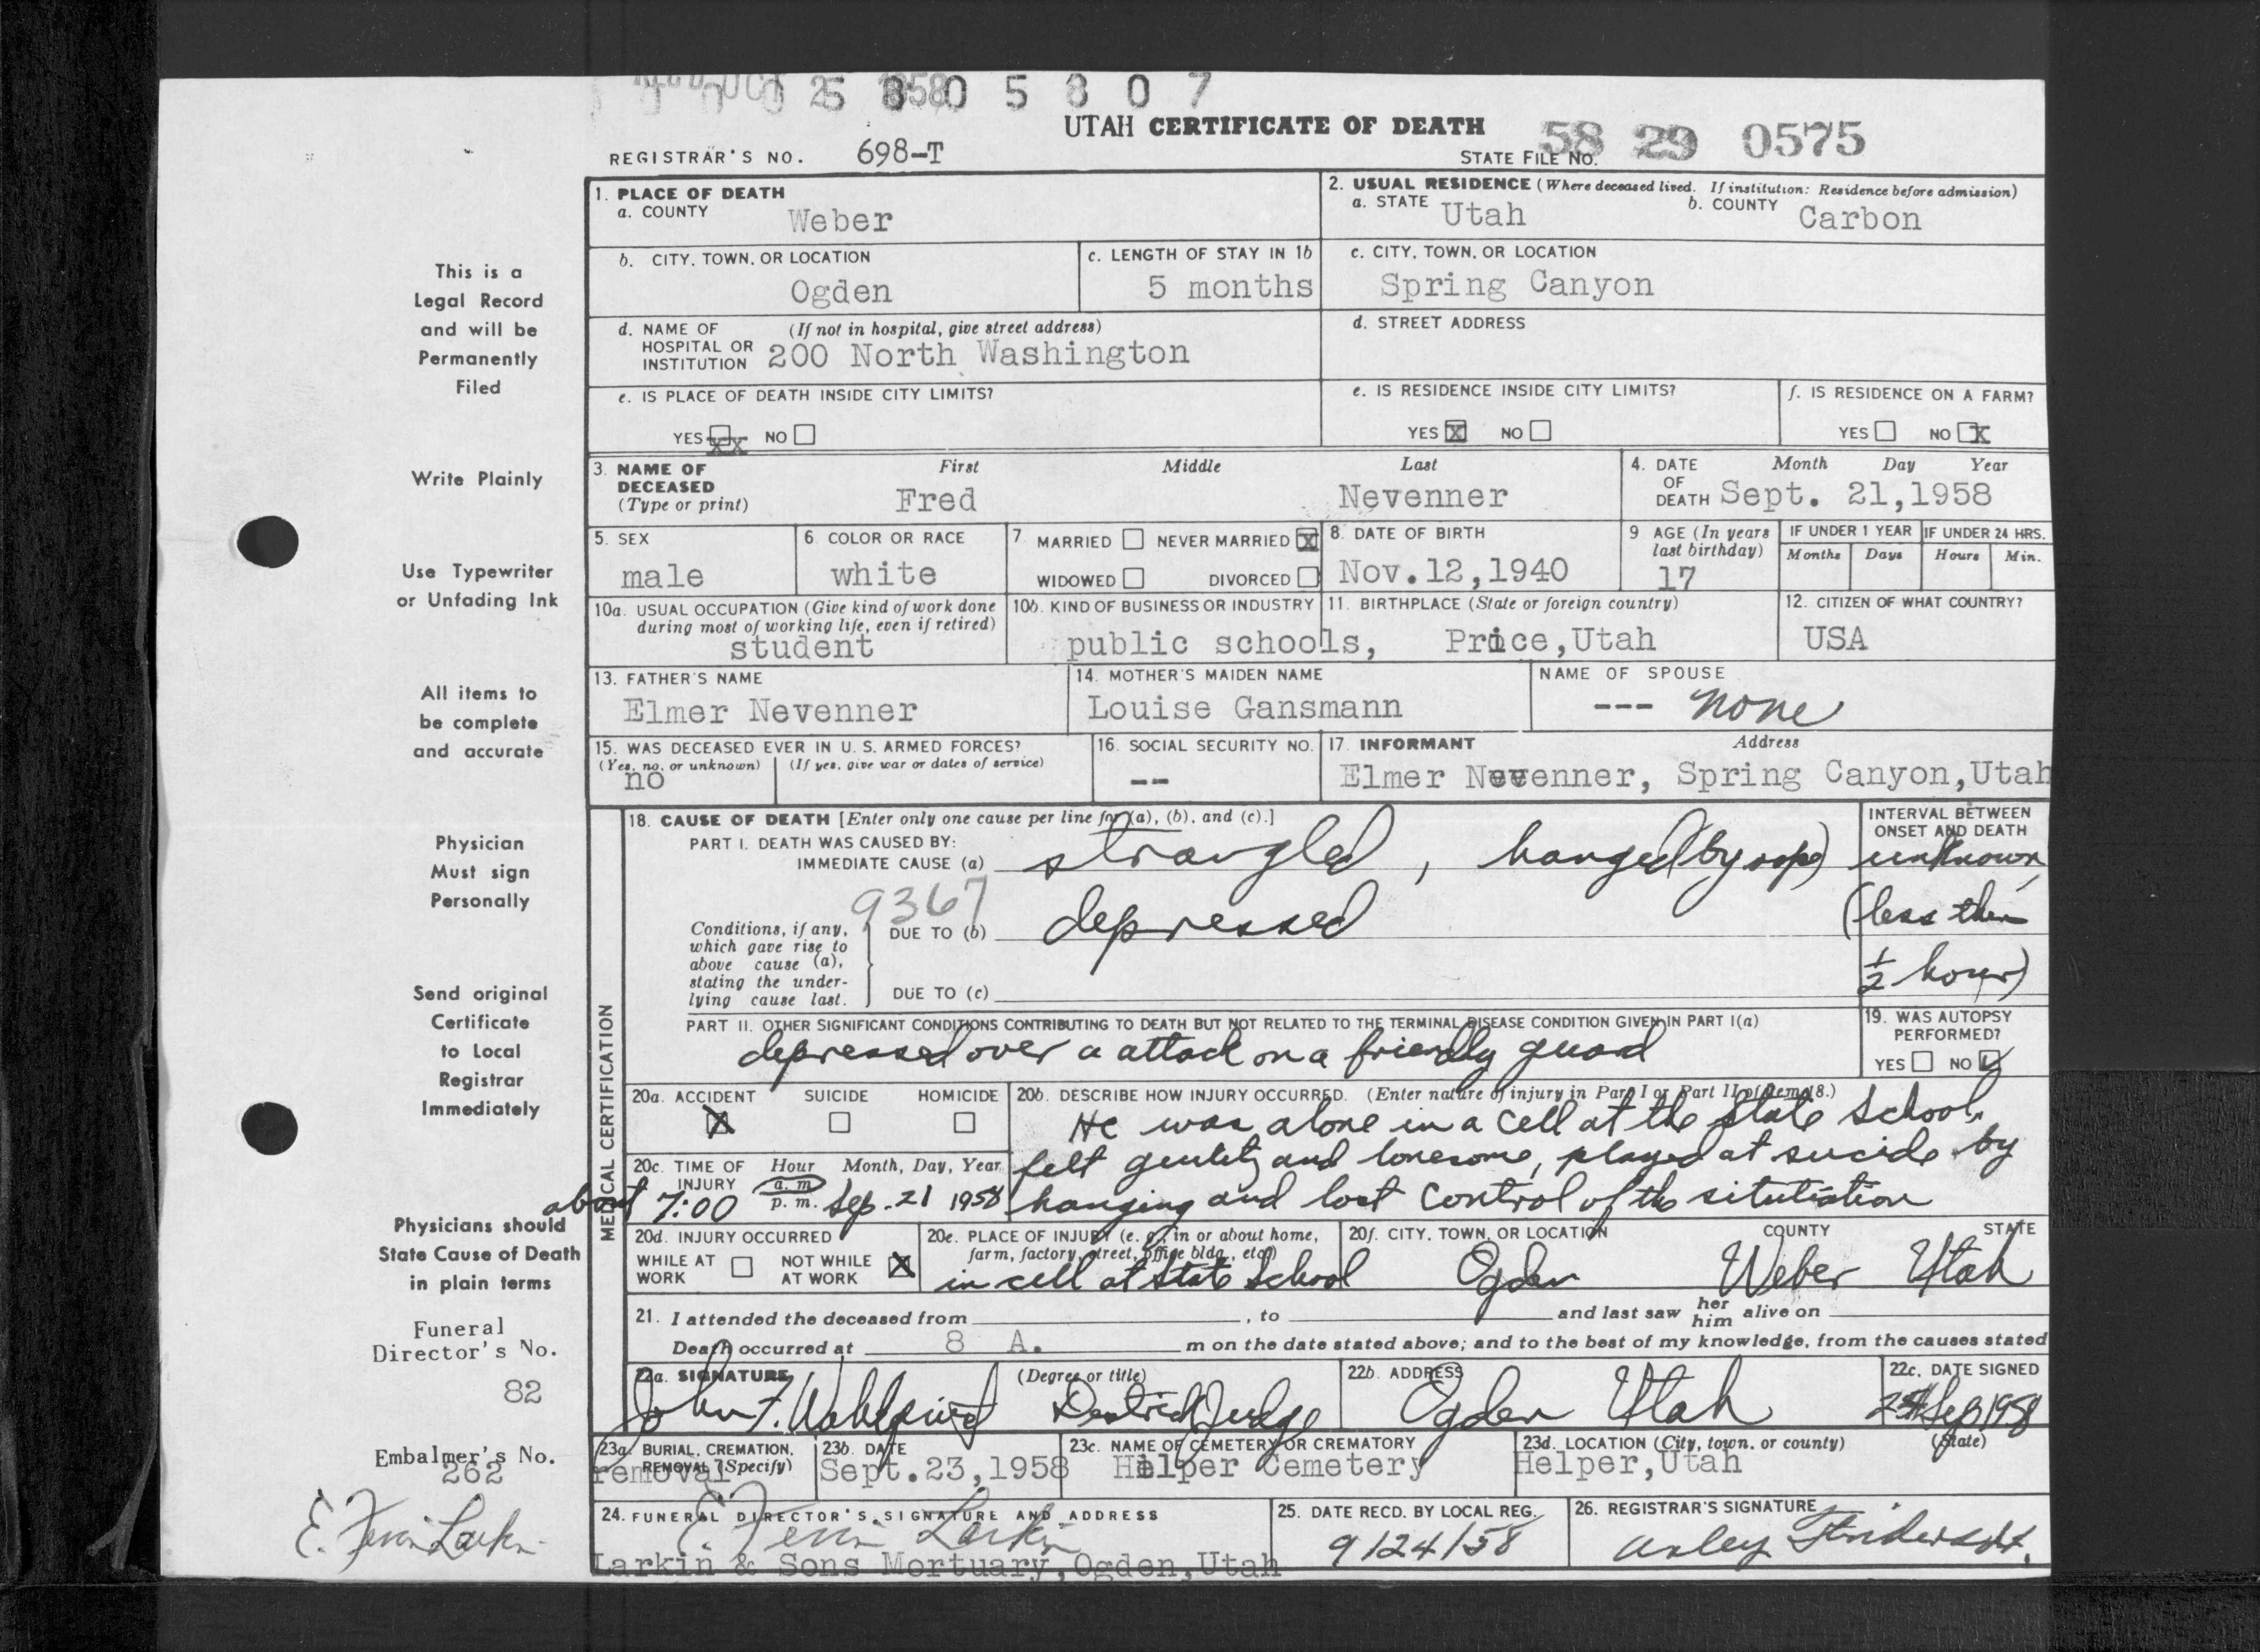 0 5 8 0 5 8 0 7
UTAH CERTIFICATE OF DEATH
REGISTRAR'S NO. 698-T
STATE FILE NO. 58 29 0575
This is a
Legal Record
and will be
Permanently
Filed
Write Plainly
Use Typewriter
or Unfading Ink
All items to
be complete
and accurate
Physician
Must sign
Personally
Send original
Certificate
to Local
Registrar
Immediately
Physicians should
State Cause of Death
in plain terms
Funeral
Director's No.
82
Embalmer's No.
262
1. PLACE OF DEATH
a. COUNTY Weber
2. USUAL RESIDENCE (Where deceased lived. If institution: Residence before admission)
a. STATE Utah b. COUNTY Carbon
b. CITY, TOWN, OR LOCATION
Ogden
c. LENGTH OF STAY IN 1b
5 months
c. CITY, TOWN, OR LOCATION
Spring Canyon
d. NAME OF (If not in hospital, give street address)
HOSPITAL OR
INSTITUTION 200 North Washington
d. STREET ADDRESS
e. IS PLACE OF DEATH INSIDE CITY LIMITS?
YES xx NO
e. IS RESIDENCE INSIDE CITY LIMITS?
YES X NO
f. IS RESIDENCE ON A FARM?
YES NO X
3. NAME OF DECEASED (Type or print)
First Middle Last
Fred Nevenner
4. DATE OF DEATH Month Day Year
Sept. 21,1958
5. SEX
male
6. COLOR OR RACE
white
7. MARRIED NEVER MARRIED X
WIDOWED DIVORCED
8. DATE OF BIRTH
Nov.12,1940
9 AGE (In years last birthday)
17
IF UNDER 1 YEAR
Months Days
IF UNDER 24 HRS.
Hours Min.
10a. USUAL OCCUPATION (Give kind of work done
during most of working life, even if retired)
student
10b. KIND OF BUSINESS OR INDUSTRY
public schools,
11. BIRTHPLACE (State or foreign country)
Price,Utah
12. CITIZEN OF WHAT COUNTRY?
USA
13. FATHER'S NAME
Elmer Nevenner
14. MOTHER'S MAIDEN NAME
Louise Gansmann
NAME OF SPOUSE
--- none
15. WAS DECEASED EVER IN U. S. ARMED FORCES?
(Yes, no, or unknown) (If yes, give war or dates of service)
no
16. SOCIAL SECURITY NO.
--
17. INFORMANT Address
Elmer Nevenner, Spring Canyon,Utah
MEDICAL CERTIFICATION
18. CAUSE OF DEATH [Enter only one cause per line for (a), (b), and (c).]
PART I. DEATH WAS CAUSED BY:
IMMEDIATE CAUSE (a) strangled, hanged (by rope)
INTERVAL BETWEEN
ONSET AND DEATH
unknown,
(less then
1/2 hour)
9367
Conditions, if any,
which gave rise to
above cause (a),
stating the under-
lying cause last.
DUE TO (b) depressed
DUE TO (c)
PART II. OTHER SIGNIFICANT CONDITIONS CONTRIBUTING TO DEATH BUT NOT RELATED TO THE TERMINAL DISEASE CONDITION GIVEN IN PART I(a)
depressed over a attack on a friendly guard
19. WAS AUTOPSY
PERFORMED?
YES NO
20a. ACCIDENT SUICIDE HOMICIDE
X
20b. DESCRIBE HOW INJURY OCCURRED. (Enter nature of injury in Part I or Part II of item 18.)
He was alone in a cell at the State School,
felt and lonesome, played at suicide by
hanging and lost control of the
20c. TIME OF INJURY Hour Month, Day, Year
about 7:00 a. m. p. m. Sep. 21 1958
20d. INJURY OCCURRED
WHILE AT WORK NOT WHILE AT WORK X
20e. PLACE OF INJURY (e. g., in or about home,
farm, factory, street, office bldg., etc.)
in cell at State School
20f. CITY, TOWN, OR LOCATION COUNTY STATE
Ogden Weber Utah
21. I attended the deceased from , to and last saw her him alive on
Death occurred at 8 A. m on the date stated above; and to the best of my knowledge, from the causes stated
22a. SIGNATURE (Degree or title)
John F. Wahlquist District Judge
22b. ADDRESS
Ogden Utah
22c. DATE SIGNED
Sep 1958
23a. BURIAL, CREMATION,
REMOVAL (Specify)
removal
23b. DATE
Sept.23,1958
23c. NAME OF CEMETERY OR CREMATORY
Helper Cemetery
23d. LOCATION (City, town, or county) (State)
Helper,Utah
24. FUNERAL DIRECTOR'S SIGNATURE AND ADDRESS
Larkin
Larkin & Sons Mortuary,Ogden,Utah
25. DATE RECD. BY LOCAL REG.
9/24/58
26. REGISTRAR'S SIGNATURE